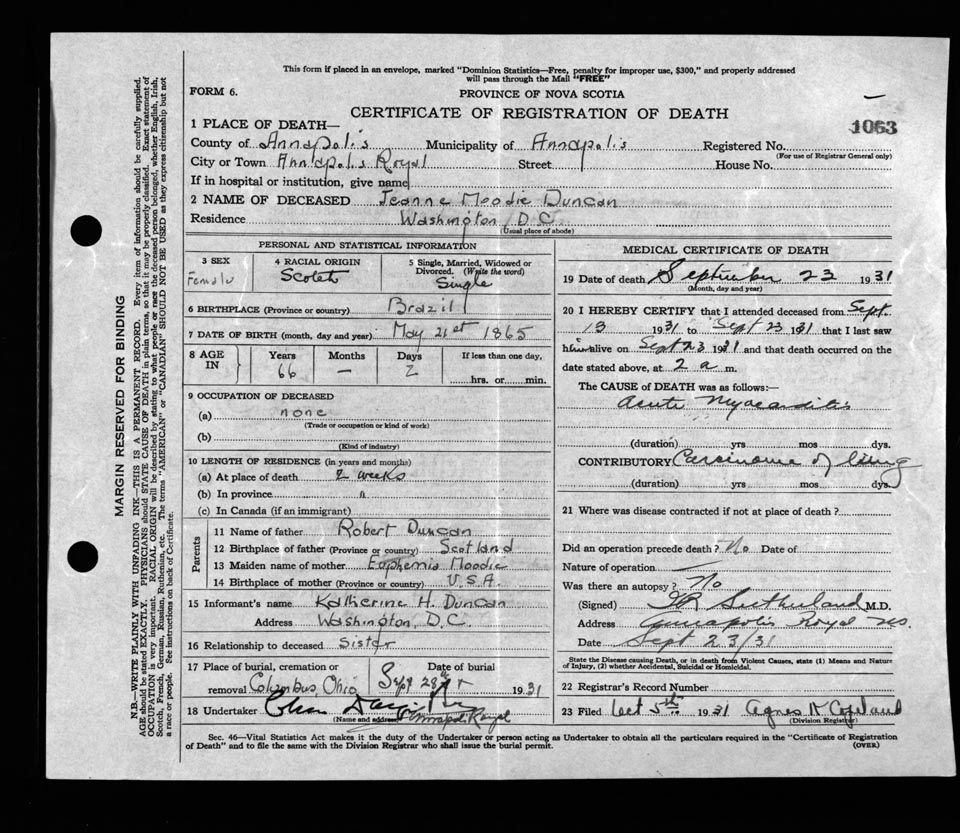 This form if placed in an envelope, marked "Dominion Statistics—Free, penalty for improper use, $300," and properly addressed
will pass through the Mail "FREE"
FORM 6.
PROVINCE OF NOVA SCOTIA
CERTIFICATE OF REGISTRATION OF DEATH
1063
1 PLACE OF DEATH—
County of Annapolis Municipality of Annapolis Registered No.
(For use of Registrar General only)
City or Town Annapolis Royal Street House No.
If in hospital or institution, give name
2 NAME OF DECEASED Jeanne Moodie Duncan
Residence Washington, D.C.
(Usual place of abode)
PERSONAL AND STATISTICAL INFORMATION
3 SEX
Female
4 RACIAL ORIGIN
Scotch
5 Single, Married, Widowed or
Divorced. (Write the word)
Single
6 BIRTHPLACE (Province or country) Brazil
7 DATE OF BIRTH (month, day and year) May 21st 1865
8 AGE
IN
Years
66
Months
—
Days
2
If less than one day,
hrs. or min.
9 OCCUPATION OF DECEASED
(a) none
(Trade or occupation or kind of work)
(b)
(Kind of industry)
10 LENGTH OF RESIDENCE (in years and months)
(a) At place of death 2 weeks
(b) In province "
(c) In Canada (if an immigrant)
Parents
11 Name of father Robert Duncan
12 Birthplace of father (Province or country) Scotland
13 Maiden name of mother Euphemia Moodie
14 Birthplace of mother (Province or country) U.S.A.
15 Informant's name Katherine H. Duncan
Address Washington, D.C.
16 Relationship to deceased Sister
17 Place of burial, cremation or
removal Columbus, Ohio
Date of burial
Sept 1931
18 Undertaker
(Name and address) Annapolis Royal
MEDICAL CERTIFICATE OF DEATH
19 Date of death September 23 1931
(Month, day and year)
20 I HEREBY CERTIFY that I attended deceased from Sept.
13 1931 to Sept 23 1931 that I last saw
him alive on Sept 23 1931 and that death occurred on the
date stated above, at 2 a m.
The CAUSE OF DEATH was as follows:—
Acute Myocarditis
(duration) yrs mos dys.
CONTRIBUTORY Carcinoma of lung
(duration) yrs mos dys.
21 Where was disease contracted if not at place of death?
Did an operation precede death? No Date of
Nature of operation —
Was there an autopsy? No
(Signed) Sutherland M.D.
Address Annapolis Royal NS.
Date Sept 23/31
State the Disease causing Death, or in death from Violent Causes, state (1) Means and Nature
of Injury, (2) whether Accidental, Suicidal or Homicidal.
22 Registrar's Record Number
23 Filed Oct 5th 1931 Agnes N Copeland
(Division Registrar)
Sec. 46—Vital Statistics Act makes it the duty of the Undertaker or person acting as Undertaker to obtain all the particulars required in the "Certificate of Registration
of Death" and to file the same with the Division Registrar who shall issue the burial permit.
(OVER)
MARGIN RESERVED FOR BINDING
N.B.—WRITE PLAINLY WITH UNFADING INK—THIS IS A PERMANENT RECORD. Every item of information should be carefully supplied.
AGE should be stated EXACTLY. PHYSICIANS should STATE CAUSE OF DEATH in plain terms, so that it may be properly classified. Exact statement of
OCCUPATION is very important. RACIAL ORIGIN will be described by stating to what people or race the deceased person belonged, whether English, Irish,
Scotch, French, German, Russian, Ruthenian, etc. The terms "AMERICAN" or "CANADIAN" SHOULD NOT BE USED as they express citizenship but not
a race or people. See instructions on back of Certificate.